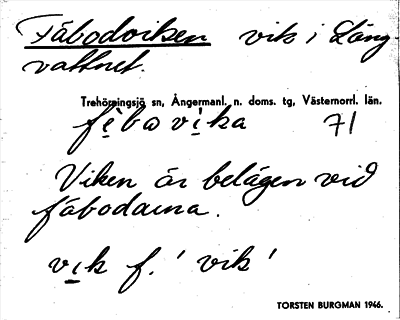 Fäbodviken vik i Lång-
vattnet.
Trehörningsjö sn, Ångermanl. n. doms. tg, Västernorrl. län.
fèba vìka 71
Viken är belägen vid
fäbodarna.
vik f. 'vik'
TORSTEN BURGMAN 1946.